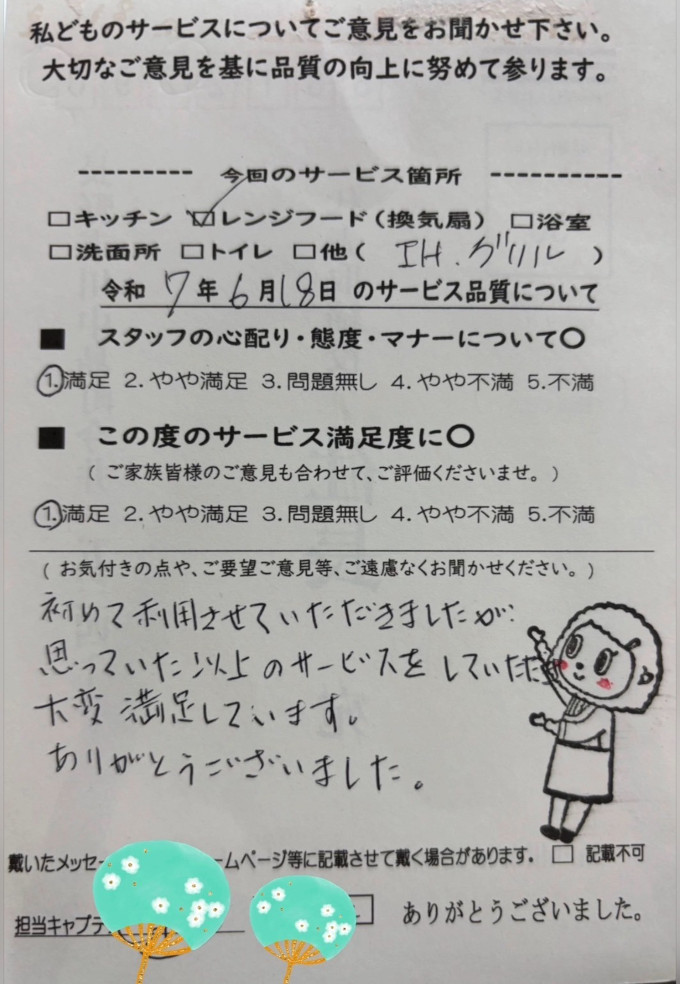 私どものサービスについてご意見をお聞かせ下さい。
大切なご意見を基に品質の向上に努めて参ります。
--------- 今回のサービス箇所 ----------
□キッチン ☑レンジフード（換気扇） □浴室
□洗面所 □トイレ □他（ IH.グリル ）
令和 7 年 6 月 18 日 のサービス品質について
■ スタッフの心配り・態度・マナーについて〇
①.満足 2.やや満足 3.問題無し 4.やや不満 5.不満
■ この度のサービス満足度に〇
（ ご家族皆様のご意見も合わせて、ご評価くださいませ。 ）
①.満足 2.やや満足 3.問題無し 4.やや不満 5.不満
（ お気付きの点や、ご要望ご意見等、ご遠慮なくお聞かせください。 ）
初めて利用させていただきましたが、
思っていた以上のサービスをしていただき
大変満足しています。
ありがとうございました。
戴いたメッセー ームページ等に記載させて戴く場合があります。 □ 記載不可
担当キャプテ ありがとうございました。